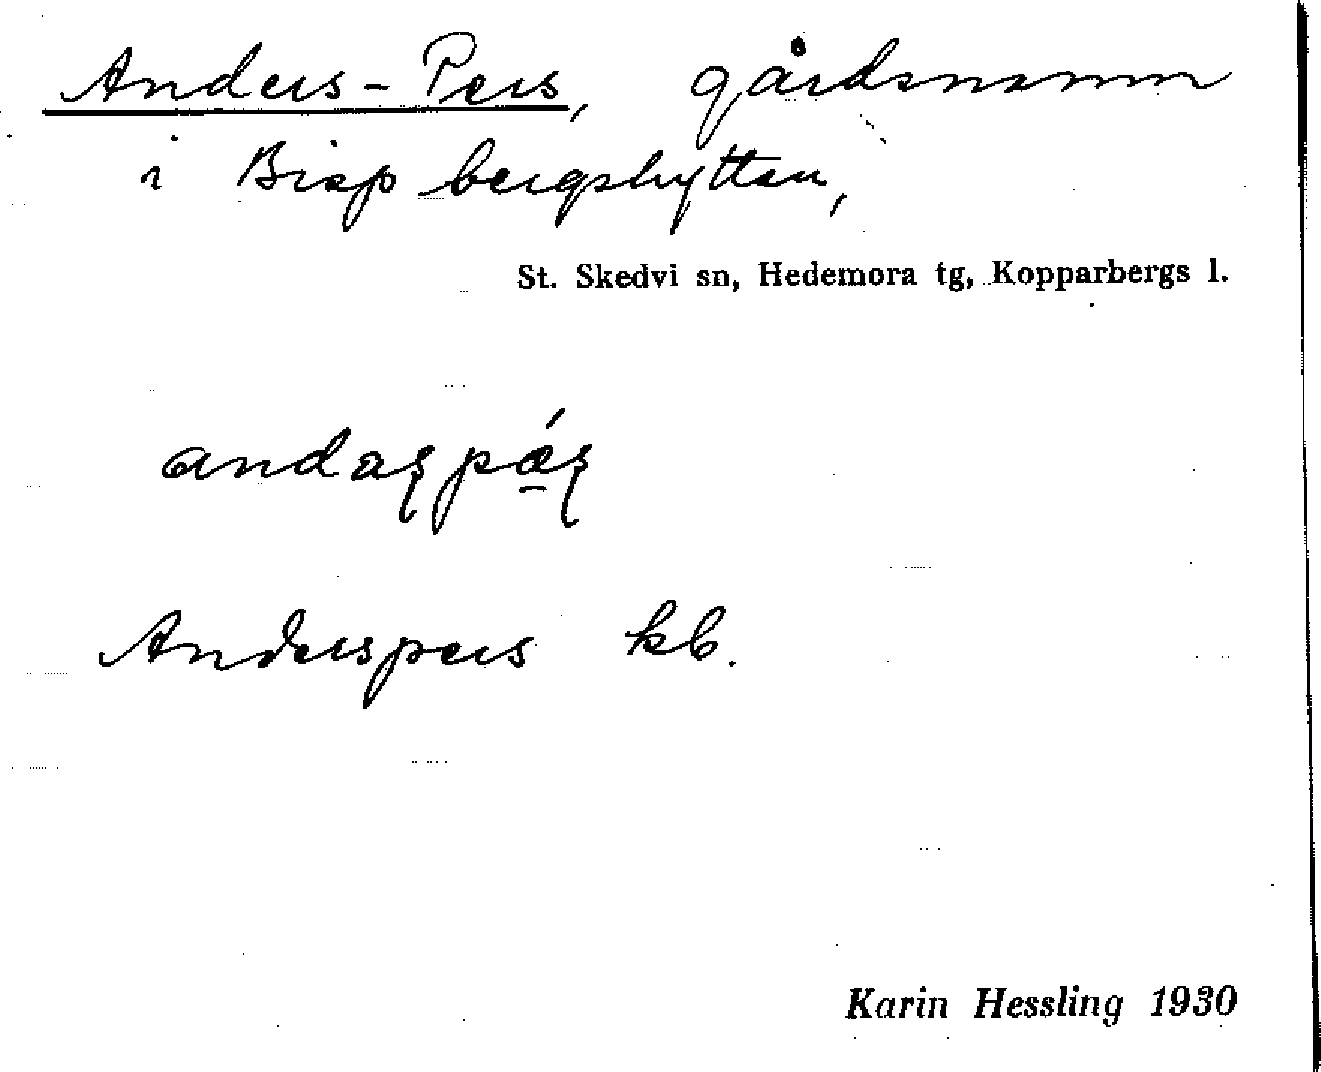 Anders-Pers, gårdsnamn
i Bispbergshyttan,
St. Skedvi sn, Hedemora tg, Kopparbergs l.
andaʂpǽ̱ʂ
Anderspers kb.
Karin Hessling 1930